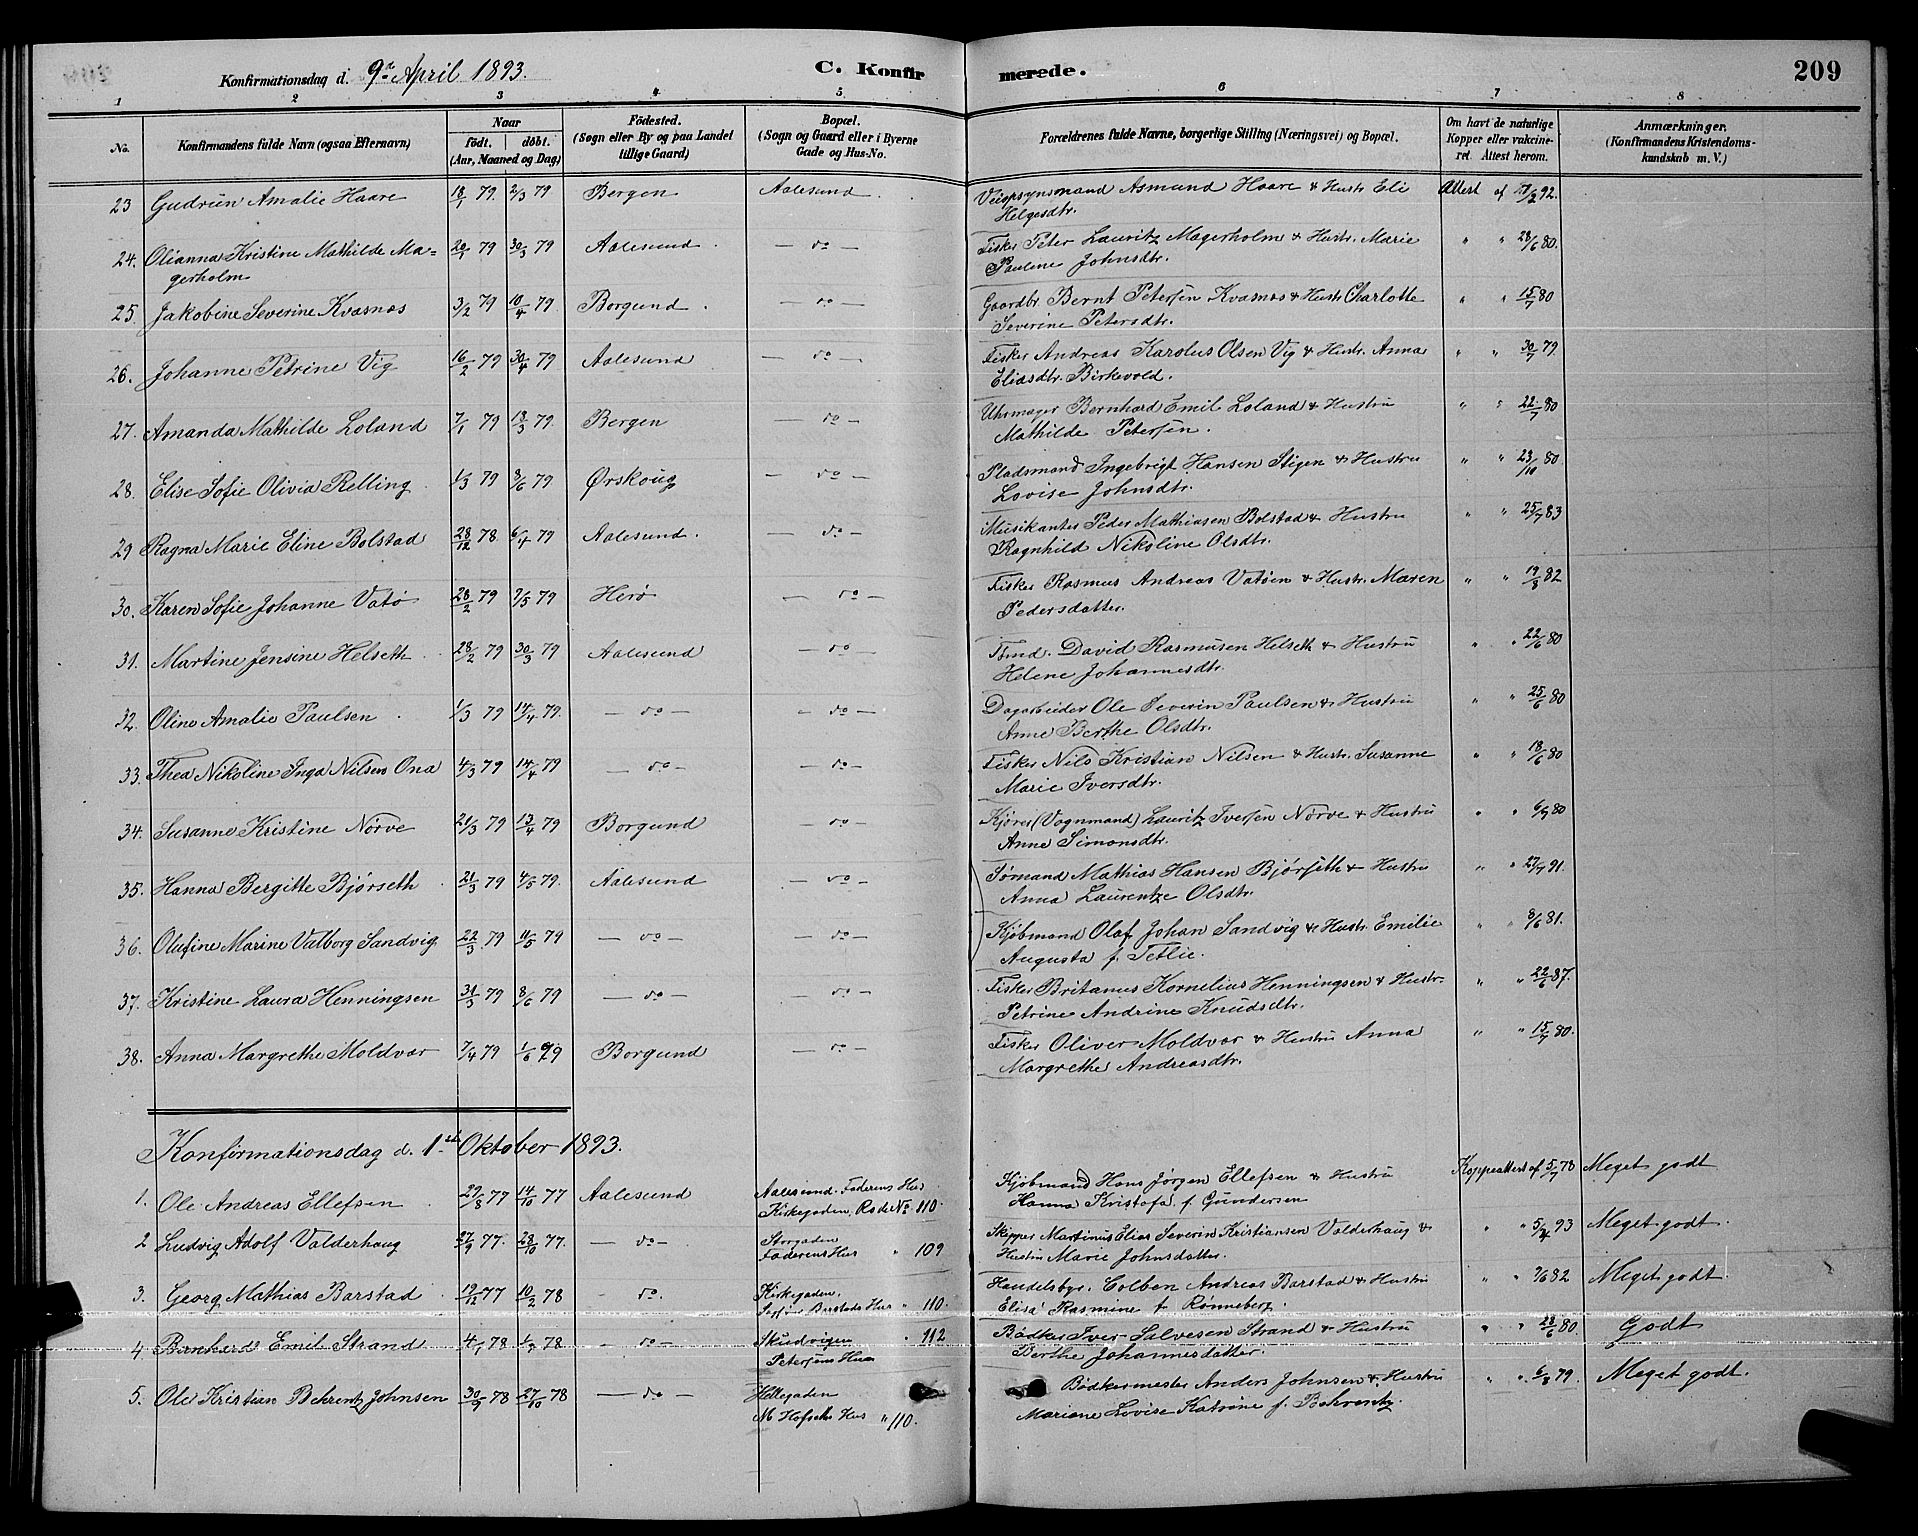 Konfirmationsdag d. 9de April 1893. C. Konfirmerede. 209
1 2 3 4 5 6 7 8
No. Konfirmandens fulde Navn (ogsaa Efternavn) Naar födt. döbt. (Aar, Maaned og Dag) Födested. (Sogn eller By og paa Landet tillige Gaard) Bopæl. (Sogn og Gaard eller i Byerne Gade og Hus-No. Forældrenes fulde Navne, borgerlige Stilling (Næringsvei) og Bopæl. Om havt de naturlige Kopper eller vakcineret. Attest herom. Anmærkninger. (Konfirmandens Kristendomskundskab m. V.)
23 Gudrun Amalie Haare 18/1 79. 2/3 79 Bergen Aalesund Veiopsynsmand Asmund Haare & Hustr. Eli Attest af /2 92.
Helgesdtr.
24. Olianna Kristine Mathilde Ma= 20/1 79 30/3 79 Aalesund. — do — Fisker Peter Lauritz Magerholm & Hustr. Marie " " 28/6 80.
gerholm Pauline Johnsdtr.
25. Jakobine Severine Kvasnæs 3/2 79 10/4 79. Borgund. — do — Gaardbr. Bernt Petersen Kvasnæs & Hustr. Charlotte " " 15/7 80
Severine Petersdtr.
26. Johanne Petrine Vig 16/2 79 30/4 79 Aalesund — do — Fisker Andreas Karolus Olsen Vig & Hustr. Anna " " 30/7 79.
Eliasdtr. Birkevold.
27. Amanda Mathilde Loland 7/1 79 13/3 79. Bergen — do — Uhrmager Bernhard Emil Loland & Hustru " " 22/7 80
Mathilde Petersen.
28. Elise Sofie Olivia Relling 1/3 79 8/6 79 Ørskoug — do — Pladsmand Ingebrigt Hansen Stigen & Hustru " " 23/10 80.
Lovise Johnsdtr.
29 Ragna Marie Eline Bolstad 28/12 78 6/4 79 Aalesund. — do — Musikanter Peder Mathiasen Bolstad & Hustru " " 25/7 83
Ragnhild Nikoline Olsdtr.
30. Karen Sofie Johanne Vatø 28/2 79 2/5 79 Herø — do — Fisker Rasmus Andreas Vatöen & Hustr. Maren " " 19/8 82
Pedersdatter.
31. Martine Jensine Helseth 28/2 79 30/3 79 Aalesund — do — Tømd. David Rasmusen Helseth & Hustru " " 22/6 80
Helene Johannesdtr.
32. Oline Amalie Paulsen. 1/3 79 14/4 79. — do — — do — Dagarbeider Ole Severin Paulsen & Hustru " " 25/6 80
Anne Berthe Olsdtr.
33. Thea Nikoline Inga Nilsen Ona 4/3 79 14/4 79 — do — — do — Fisker Nils Kristian Nilsen & Hustr. Susanne " " 18/6 80
Marie Iversdtr.
34. Susanne Kristine Nørve 21/3 79 13/4 79 Borgund — do — Kjører (Vognmand) Lauritz Iversen Nørve & Hustru " " 6/9 80
Anne Simonsdtr.
35. Hanna Bergitte Bjørseth 21/3 79 4/5 79. Aalesund — do — Sømand Mathias Hansen Bjørseth & Hustru " " 27/7 91.
Anna Laurentze Olsdtr.
36. Olufine Marine Valborg Sandvig 22/3 79 11/5 79 — do — — do — Kjøbmand Olaf Johan Sandvig & Hustr. Emilie " " 8/6 81.
Augusta f. Tetlie.
37. Kristine Laura Henningsen 31/3 79 8/6 79 — do — — do — Fisker Britanus Kornelius Henningsen & Hustr. " " 22/6 87.
Petrine Andrine Knudsdtr.
38. Anna Margrethe Moldvær 7/4 79 1/6 79 Borgund — do — Fisker Oliver Moldvær & Hustru Anna " " 15/7 80.
Margrethe Andreasdtr.
Konfirmationsdag d. 1ste Oktober 1893.
1. Ole Andreas Ellefsen 29/8 77 14/10 77 Aalesund Aalesund. Faderens Hus Kjøbmand Hans Jørgen Ellefsen & Hustru Koppeattest af 5/7 78 Meget godt
Kirkegaden, Rode No 110. Hanna Kristofa f. Gundersen
2 Ludvig Adolf Valderhaug 27/9 77. 28/10 77. — do — Storgaden Skipper Martinus Elias Severin Kristiansen Valderhaug & " " 5/4 93 Meget godt.
Faderens Hus " 109 Hustru Marie Johnsdatter.
3. Georg Mathias Barstad. 19/12 77 10/2 78 — do. Kirkegaden. Handelsbgr. Colben Andreas Barstad & Hustru " " 9/6 82 Meget godt.
Barstads Hus " 110. Elisa Rasmine f. Rønneberg.
4. Bernhard Emil Strand 4/1 78 1/3 78 — do — Skudvigen " 112 Bødker Iver Salvesen Strand & Hustru " " 28/6 80. Godt
Petersens Hus Berthe Johannesdatter.
5. Ole Kristian Behrentz Johnsen 30/9 78 27/10 78 — do — Hellegaden Bødkermester Anders Johnsen & Hustru " " 6/8 79. Meget godt.
M. Hofseths Hus " 110. Mariane Lovise Katrine f. Behrentz.